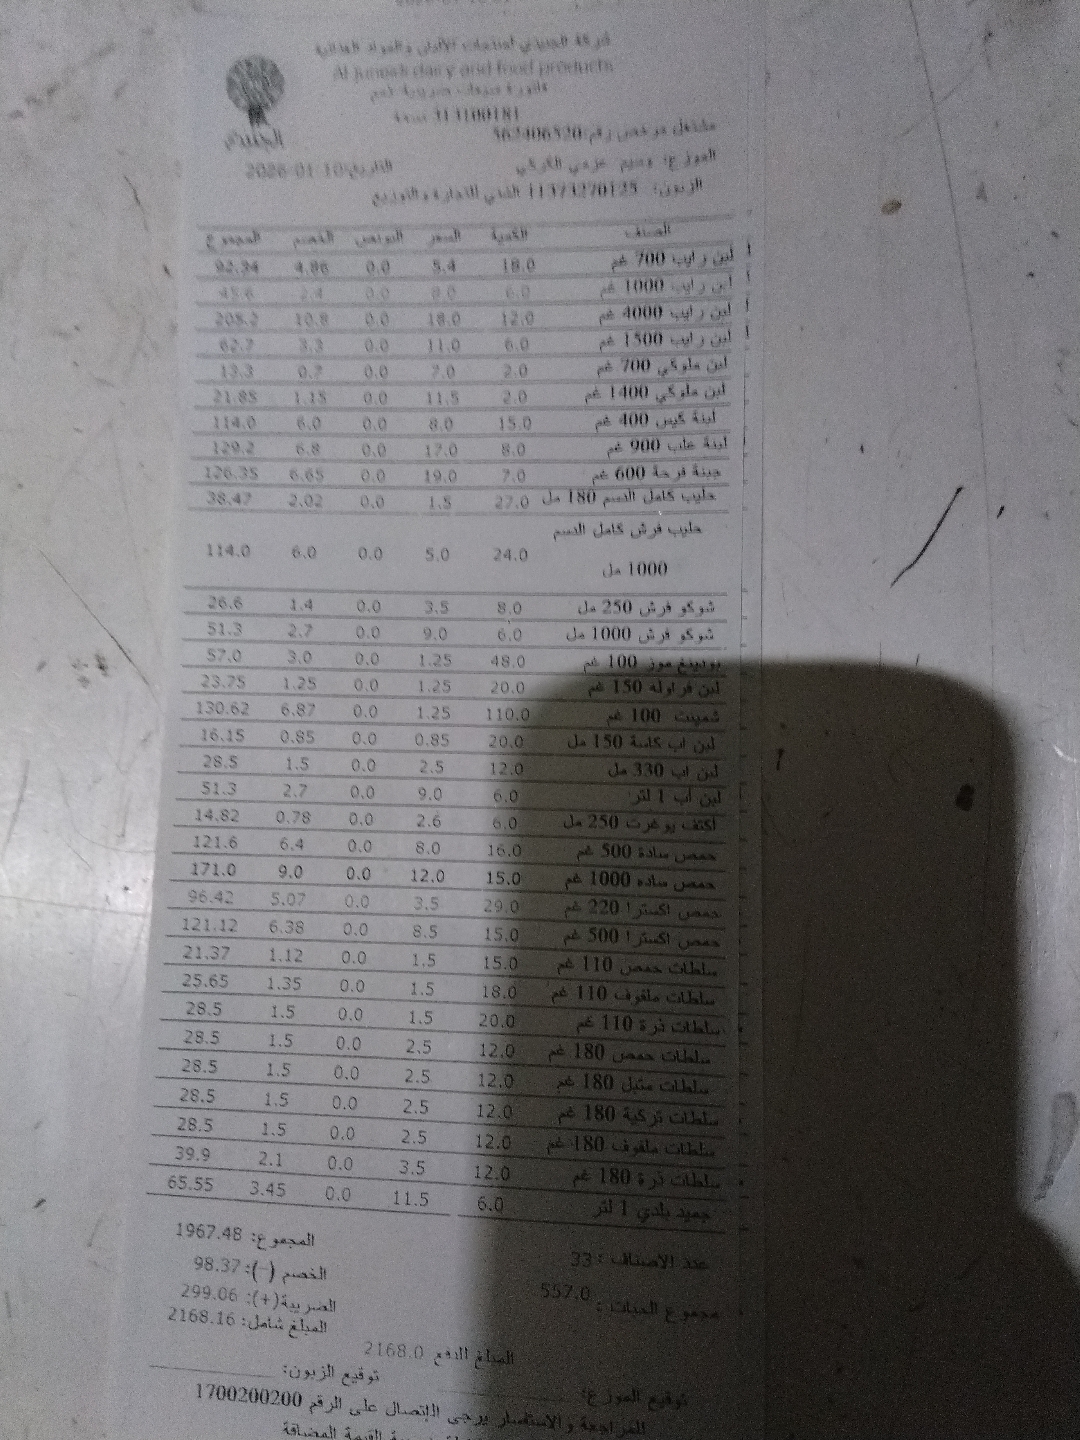 شركة الجنيدي لمنتجات الألبان والمواد الغذائية
Al Juneidi dairy and food products
فاتورة مبيعات ضريبية رقم
313100181 نسخة
الجنيدي
مشتغل مرخص رقم:562406520
الموزع: وسيم عزمي الكركي التاريخ:2026-01-10
الزبون: 11373270125 للتجارة والتوزيع
الصنف الكمية السعر البونص الخصم المجموع
لبن رايب 700 غم 18.0 5.4 0.0 4.86 92.34
لبن رايب 1000 غم 6.0 8.0 0.0 2.4 45.6
لبن رايب 4000 غم 12.0 18.0 0.0 10.8 205.2
لبن رايب 1500 غم 6.0 11.0 0.0 3.3 62.7
لبن ملوكي 700 غم 2.0 7.0 0.0 0.7 13.3
لبن ملوكي 1400 غم 2.0 11.5 0.0 1.15 21.85
لبنة كيس 400 غم 15.0 8.0 0.0 6.0 114.0
لبنة علب 900 غم 8.0 17.0 0.0 6.8 129.2
جبنة فرحة 600 غم 7.0 19.0 0.0 6.65 126.35
حليب كامل الدسم 180 مل 27.0 1.5 0.0 2.02 38.47
حليب فرش كامل الدسم
1000 مل 24.0 5.0 0.0 6.0 114.0
شوكو فرش 250 مل 8.0 3.5 0.0 1.4 26.6
شوكو فرش 1000 مل 6.0 9.0 0.0 2.7 51.3
بودينغ موز 100 غم 48.0 1.25 0.0 3.0 57.0
لبن فراوله 150 غم 20.0 1.25 0.0 1.25 23.75
شمينت 100 غم 110.0 1.25 0.0 6.87 130.62
لبن اب كاسة 150 مل 20.0 0.85 0.0 0.85 16.15
لبن اب 330 مل 12.0 2.5 0.0 1.5 28.5
لبن أب 1 لتر 6.0 9.0 0.0 2.7 51.3
اكتف يوغرت 250 مل 6.0 2.6 0.0 0.78 14.82
حمص سادة 500 غم 16.0 8.0 0.0 6.4 121.6
حمص ساده 1000 غم 15.0 12.0 0.0 9.0 171.0
حمص اكسترا 220 غم 29.0 3.5 0.0 5.07 96.42
حمص اكسترا 500 غم 15.0 8.5 0.0 6.38 121.12
سلطات حمص 110 غم 15.0 1.5 0.0 1.12 21.37
سلطات ملفوف 110 غم 18.0 1.5 0.0 1.35 25.65
سلطات ذرة 110 غم 20.0 1.5 0.0 1.5 28.5
سلطات حمص 180 غم 12.0 2.5 0.0 1.5 28.5
سلطات متبل 180 غم 12.0 2.5 0.0 1.5 28.5
سلطات تركية 180 غم 12.0 2.5 0.0 1.5 28.5
سلطات ملفوف 180 غم 12.0 2.5 0.0 1.5 28.5
سلطات ذرة 180 غم 12.0 3.5 0.0 2.1 39.9
جميد بلدي 1 لتر 6.0 11.5 0.0 3.45 65.55
عدد الاصناف : 33 المجموع: 1967.48
مجموع الحبات : 557.0 الخصم (-): 98.37
الضريبة(+): 299.06
المبلغ شامل: 2168.16
المبلغ للدفع 2168.0
توقيع الموزع: توقيع الزبون:
للمراجعة والاستفسار يرجى الإتصال على الرقم 1700200200
ضريبة القيمة المضافة